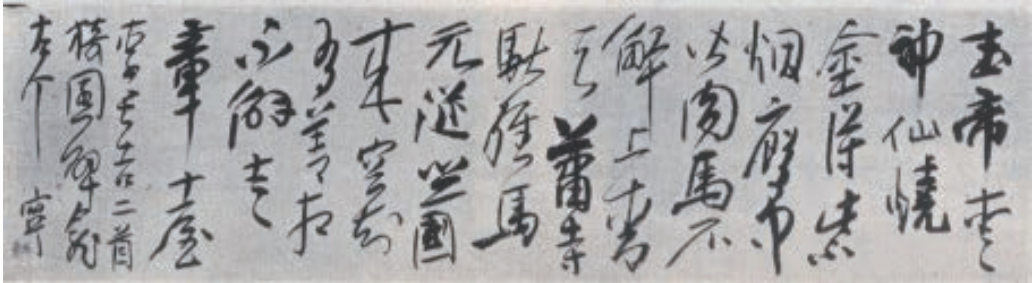 武帝愛
神仙燒
金得紫
烟廄中
皆肉馬不
解上青
天蕭寺
馱經馬
元從竺國
來空知
有善相
不解走
章臺
吉二首
國解